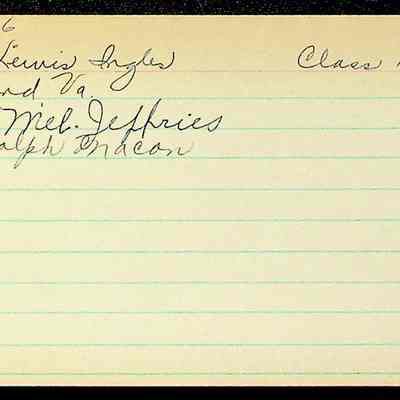 6
Lewis Ingles Class
nd Va.
Mel. Jeffries
alph Macon